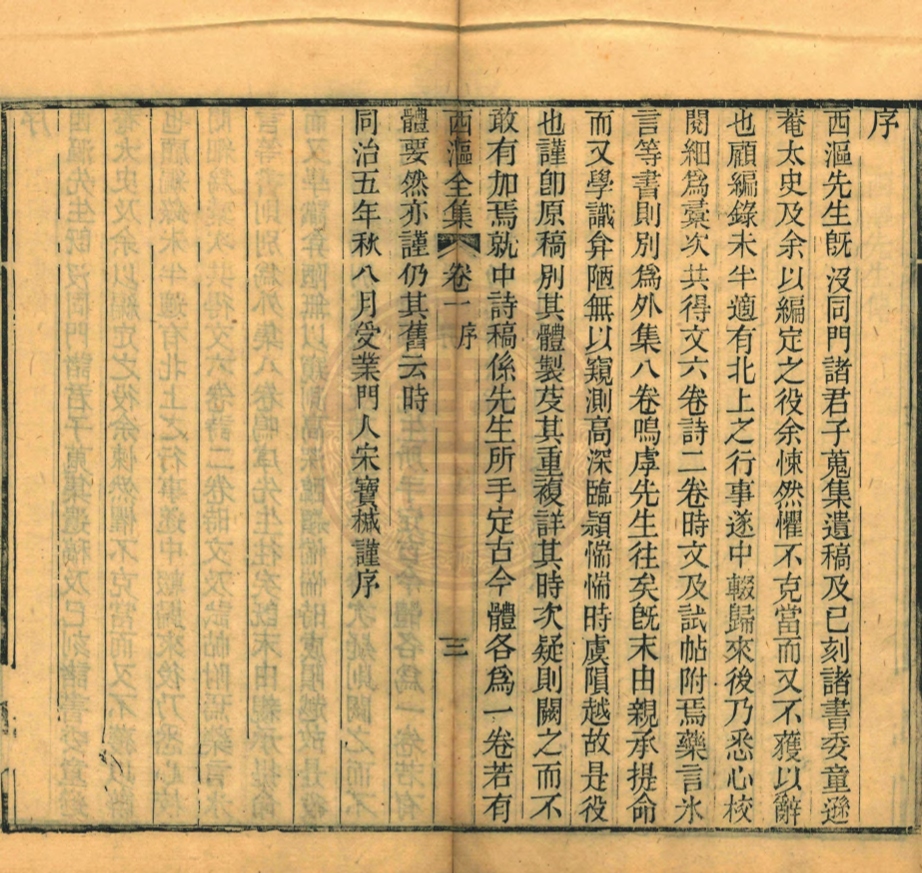 序
西漚先生旣沒同門諸君子蒐集遺稿及已刻諸書委童遜
菴太史及余以編定之役余悚然懼不克當而又不獲以辭
也顧編錄未半適有北上之行事遂中輟歸來後乃悉心校
閱細爲彙次共得文六卷詩二卷時文及試帖附焉藥言氷
言等書則別爲外集八卷嗚虖先生往矣旣末由親承提命
而又學識弇陋無以窺測高深臨潁惴惴時虞隕越故是役
也謹卽原稿別其體製芟其重複詳其時次疑則闕之而不
敢有加焉就中詩稿係先生所手定古今體各爲一卷若有
西漚全集 卷一 序 三
體要然亦謹仍其舊云時
同治五年秋八月受業門人宋寶椷謹序